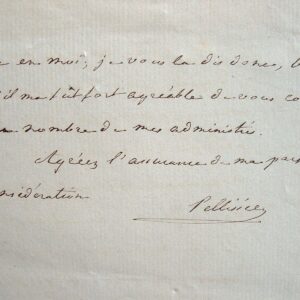 e en moi, je vous la dis donc,
il me fut fort agréable de vous co
nombre de mes administrés.
Agréez l'assurance de ma par
nsidération
Pellissier